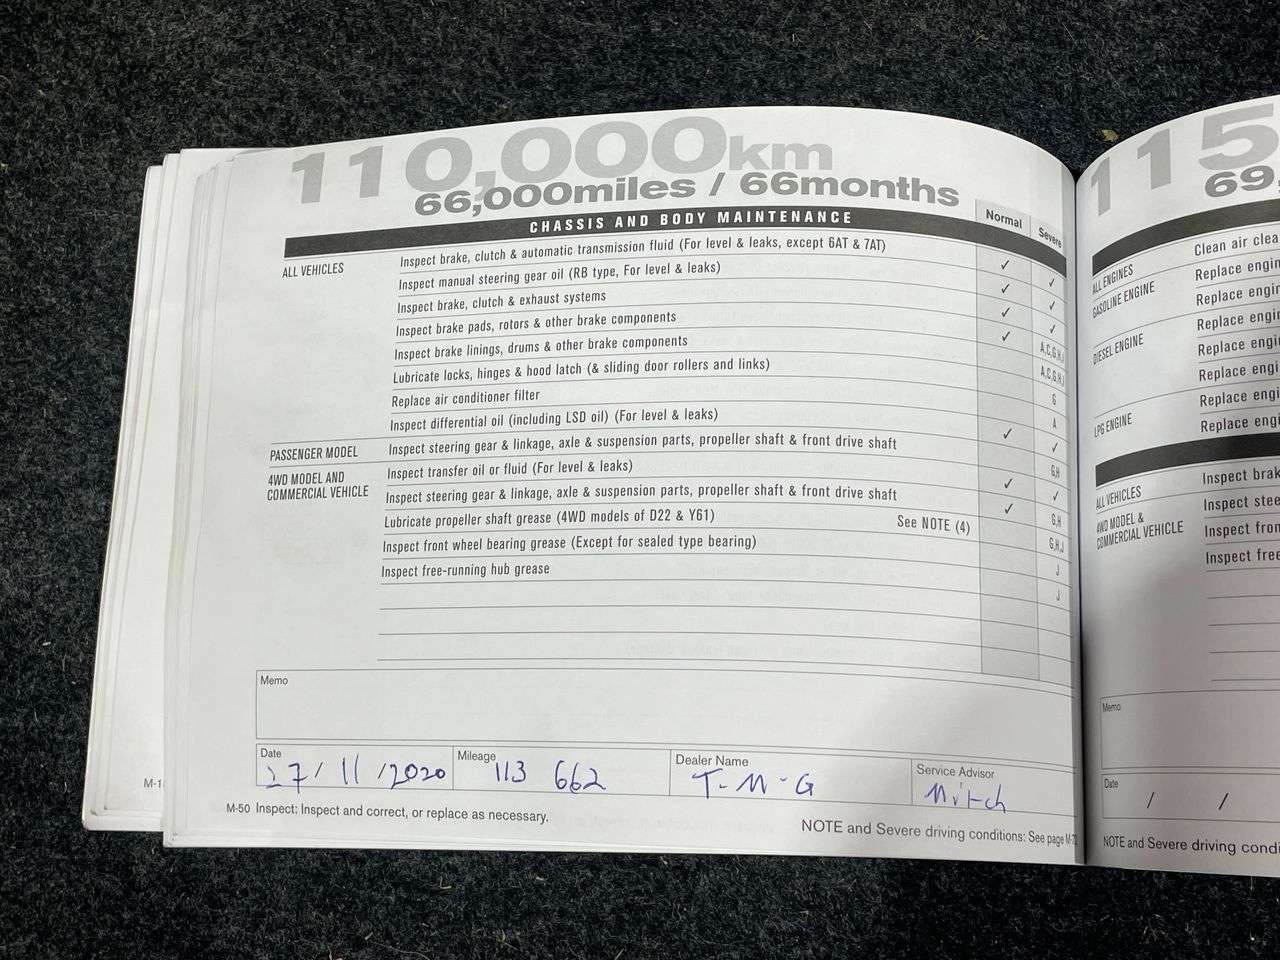 110,000km
66,000miles / 66months
CHASSIS AND BODY MAINTENANCE Normal Severe
ALL VEHICLES Inspect brake, clutch & automatic transmission fluid (For level & leaks, except 6AT & 7AT) ✓ ✓
Inspect manual steering gear oil (RB type, For level & leaks) ✓ ✓
Inspect brake, clutch & exhaust systems ✓ ✓
Inspect brake pads, rotors & other brake components ✓ A,C,G,H,J
Inspect brake linings, drums & other brake components A,C,G,H,J
Lubricate locks, hinges & hood latch (& sliding door rollers and links) G
Replace air conditioner filter A
Inspect differential oil (including LSD oil) (For level & leaks) ✓ ✓
PASSENGER MODEL Inspect steering gear & linkage, axle & suspension parts, propeller shaft & front drive shaft G,H
4WD MODEL AND COMMERCIAL VEHICLE Inspect transfer oil or fluid (For level & leaks) ✓ ✓
Inspect steering gear & linkage, axle & suspension parts, propeller shaft & front drive shaft ✓ G,H
Lubricate propeller shaft grease (4WD models of D22 & Y61) See NOTE (4) G,H,J
Inspect front wheel bearing grease (Except for sealed type bearing) J
Inspect free-running hub grease J
Memo
Date 27/11/2020 Mileage 113 662 Dealer Name T-M-G Service Advisor Mitch
M-50 Inspect: Inspect and correct, or replace as necessary.
NOTE and Severe driving conditions: See page M-72
115
69,
ALL ENGINES Clean air clea
GASOLINE ENGINE Replace engin
Replace engin
DIESEL ENGINE Replace engin
Replace engi
Replace engi
Replace engi
LPG ENGINE Replace engi
ALL VEHICLES Inspect brak
4WD MODEL & COMMERCIAL VEHICLE Inspect stee
Inspect fron
Inspect free
Memo
Date / /
NOTE and Severe driving condi